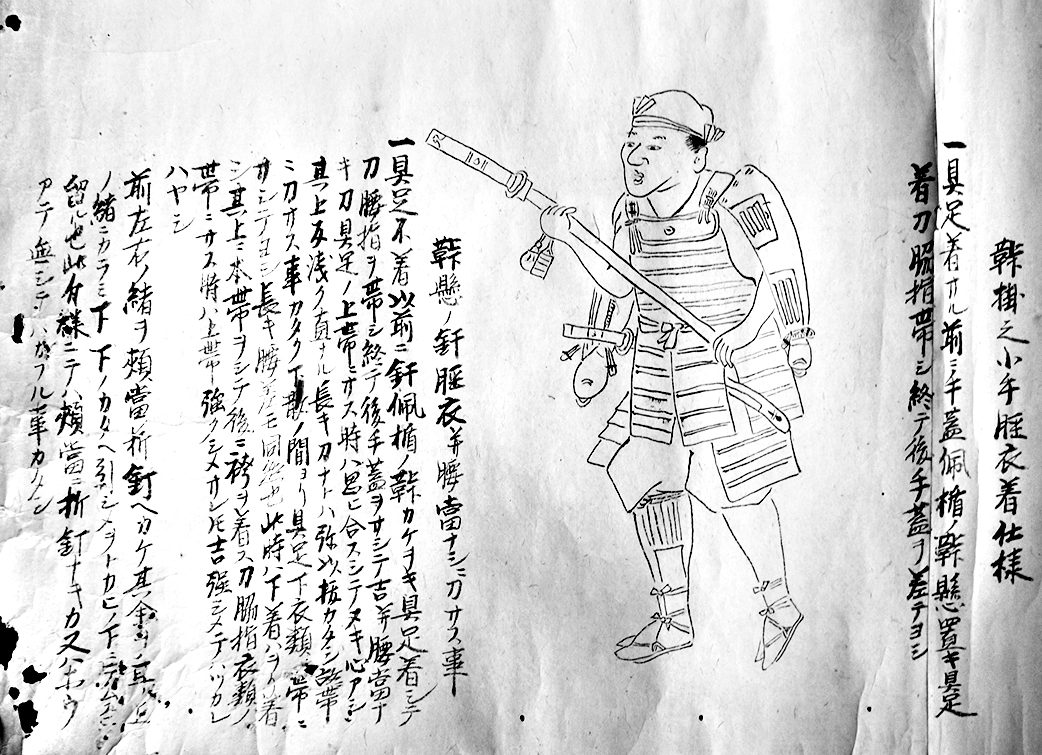 鞢掛之小手脛衣着仕様
一具足着オル前ニ手蓋佩楯ノ鞢懸置キ具足
着刀脇指帯シ終テ後手蓋ヲ差テヨシ
鞢懸ノ釬脛衣并腰當ナシニ刀サス事
一具足不着以前ニ釬佩楯ノ鞢カケヲキ具足着シテ
刀腰指ヲ帯シ終テ後手蓋ヲサシテ吉并腰當ナ
キ刀具足ノ上帯ニサス時ハ思ヒ合スシテヌキ心アシ
其上反浅ク直ナル長キ刀ナトハ弥以抜カタシ故帯
ニ刀サス事カタク下散ノ間ヨリ具足下衣類ノ帯ニ
サシテヨシ長キ腰差モ同然也此時ハ下着ハヲリ着
シ其上ニ本帯ヲシテ後ニ袴ヲ着ス刀脇指衣類ノ
帯ニサス時ハ上帯強クシメオシ吉強シメテハツカレ
ハヤシ
前左右ノ緒ヲ頬當折釘ヘカケ其余ヲ耳
ノ緒ニカラミ下下ノカタヘ引シメヲトカヒノ下ニテムスヒ
留ル也此付様ニテハ頬當ニ折釘ナキカ又ハホウ
アテ無シテハカフル事カタシ